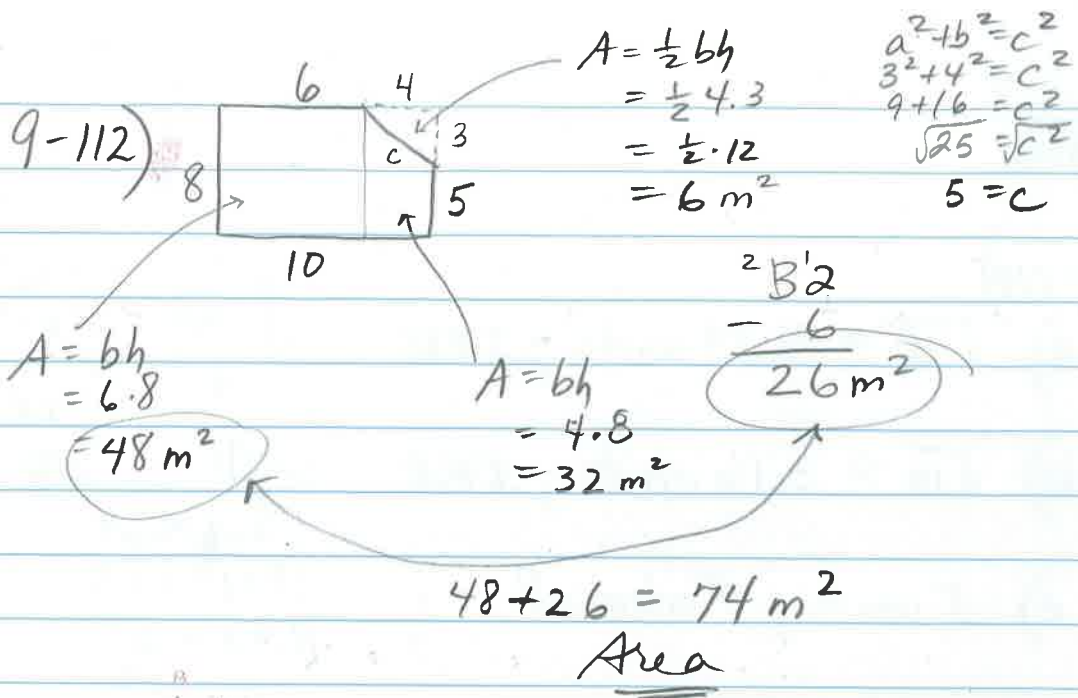 9-112)
6
4
8
c
3
5
10
A = ½ bh
= ½ 4.3
= ½ · 12
= 6 m²
a² + b² = c²
3² + 4² = c²
9 + 16 = c²
√25 = √c²
5 = c
A = bh
= 6 · 8
= 48 m²
A = bh
= 4 · 8
= 32 m²
²3¹2
- 6
26 m²
48 + 26 = 74 m²
Area